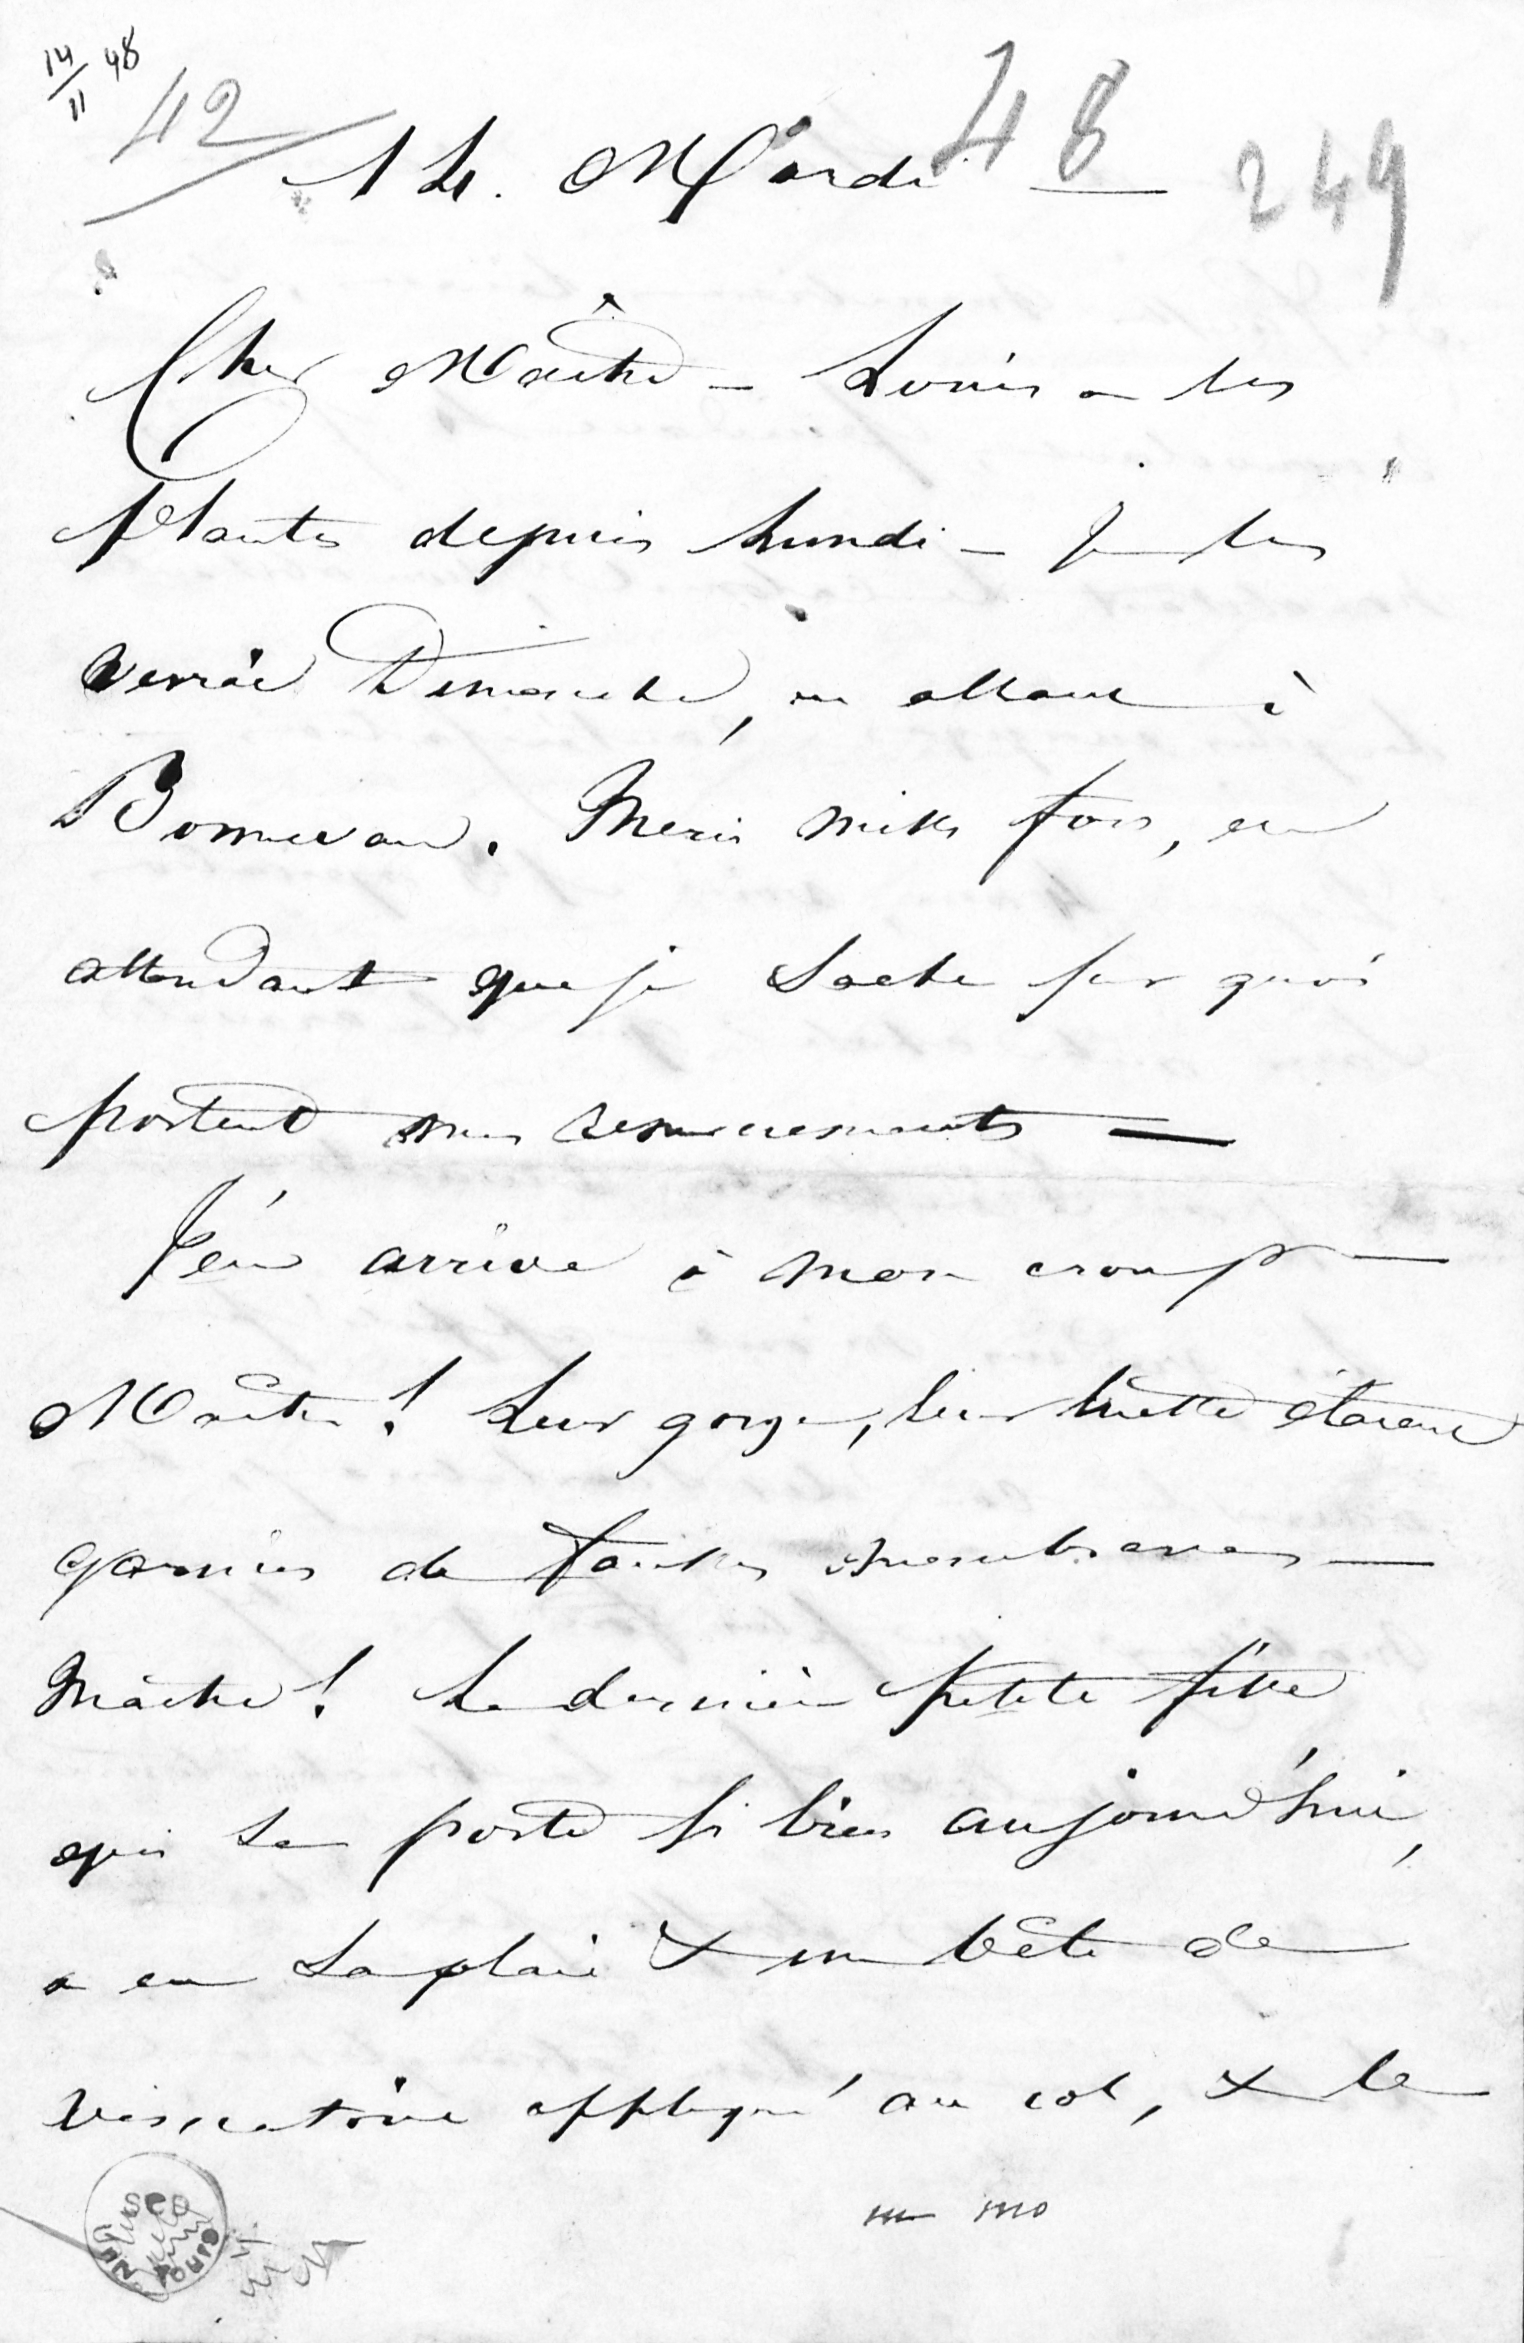 14/11 48
42
48
249
14. Mardi —
Cher Maître — Louis a les
plantes depuis Lundi — Je les
verrai Dimanche, en allant à
Bonnevau. Merci mille fois, en
attendant que je sache sur quoi
portent mes remerciements —
J'en arrive à mon croup —
Maître! Leur gorge, leur luette étaient
garnies de fausses membranes —
Maître! La dernière petite fille
qui se porte si bien aujourd'hui,
a eu la plaie & un bête de
vésicatoire appliqué au col, & le